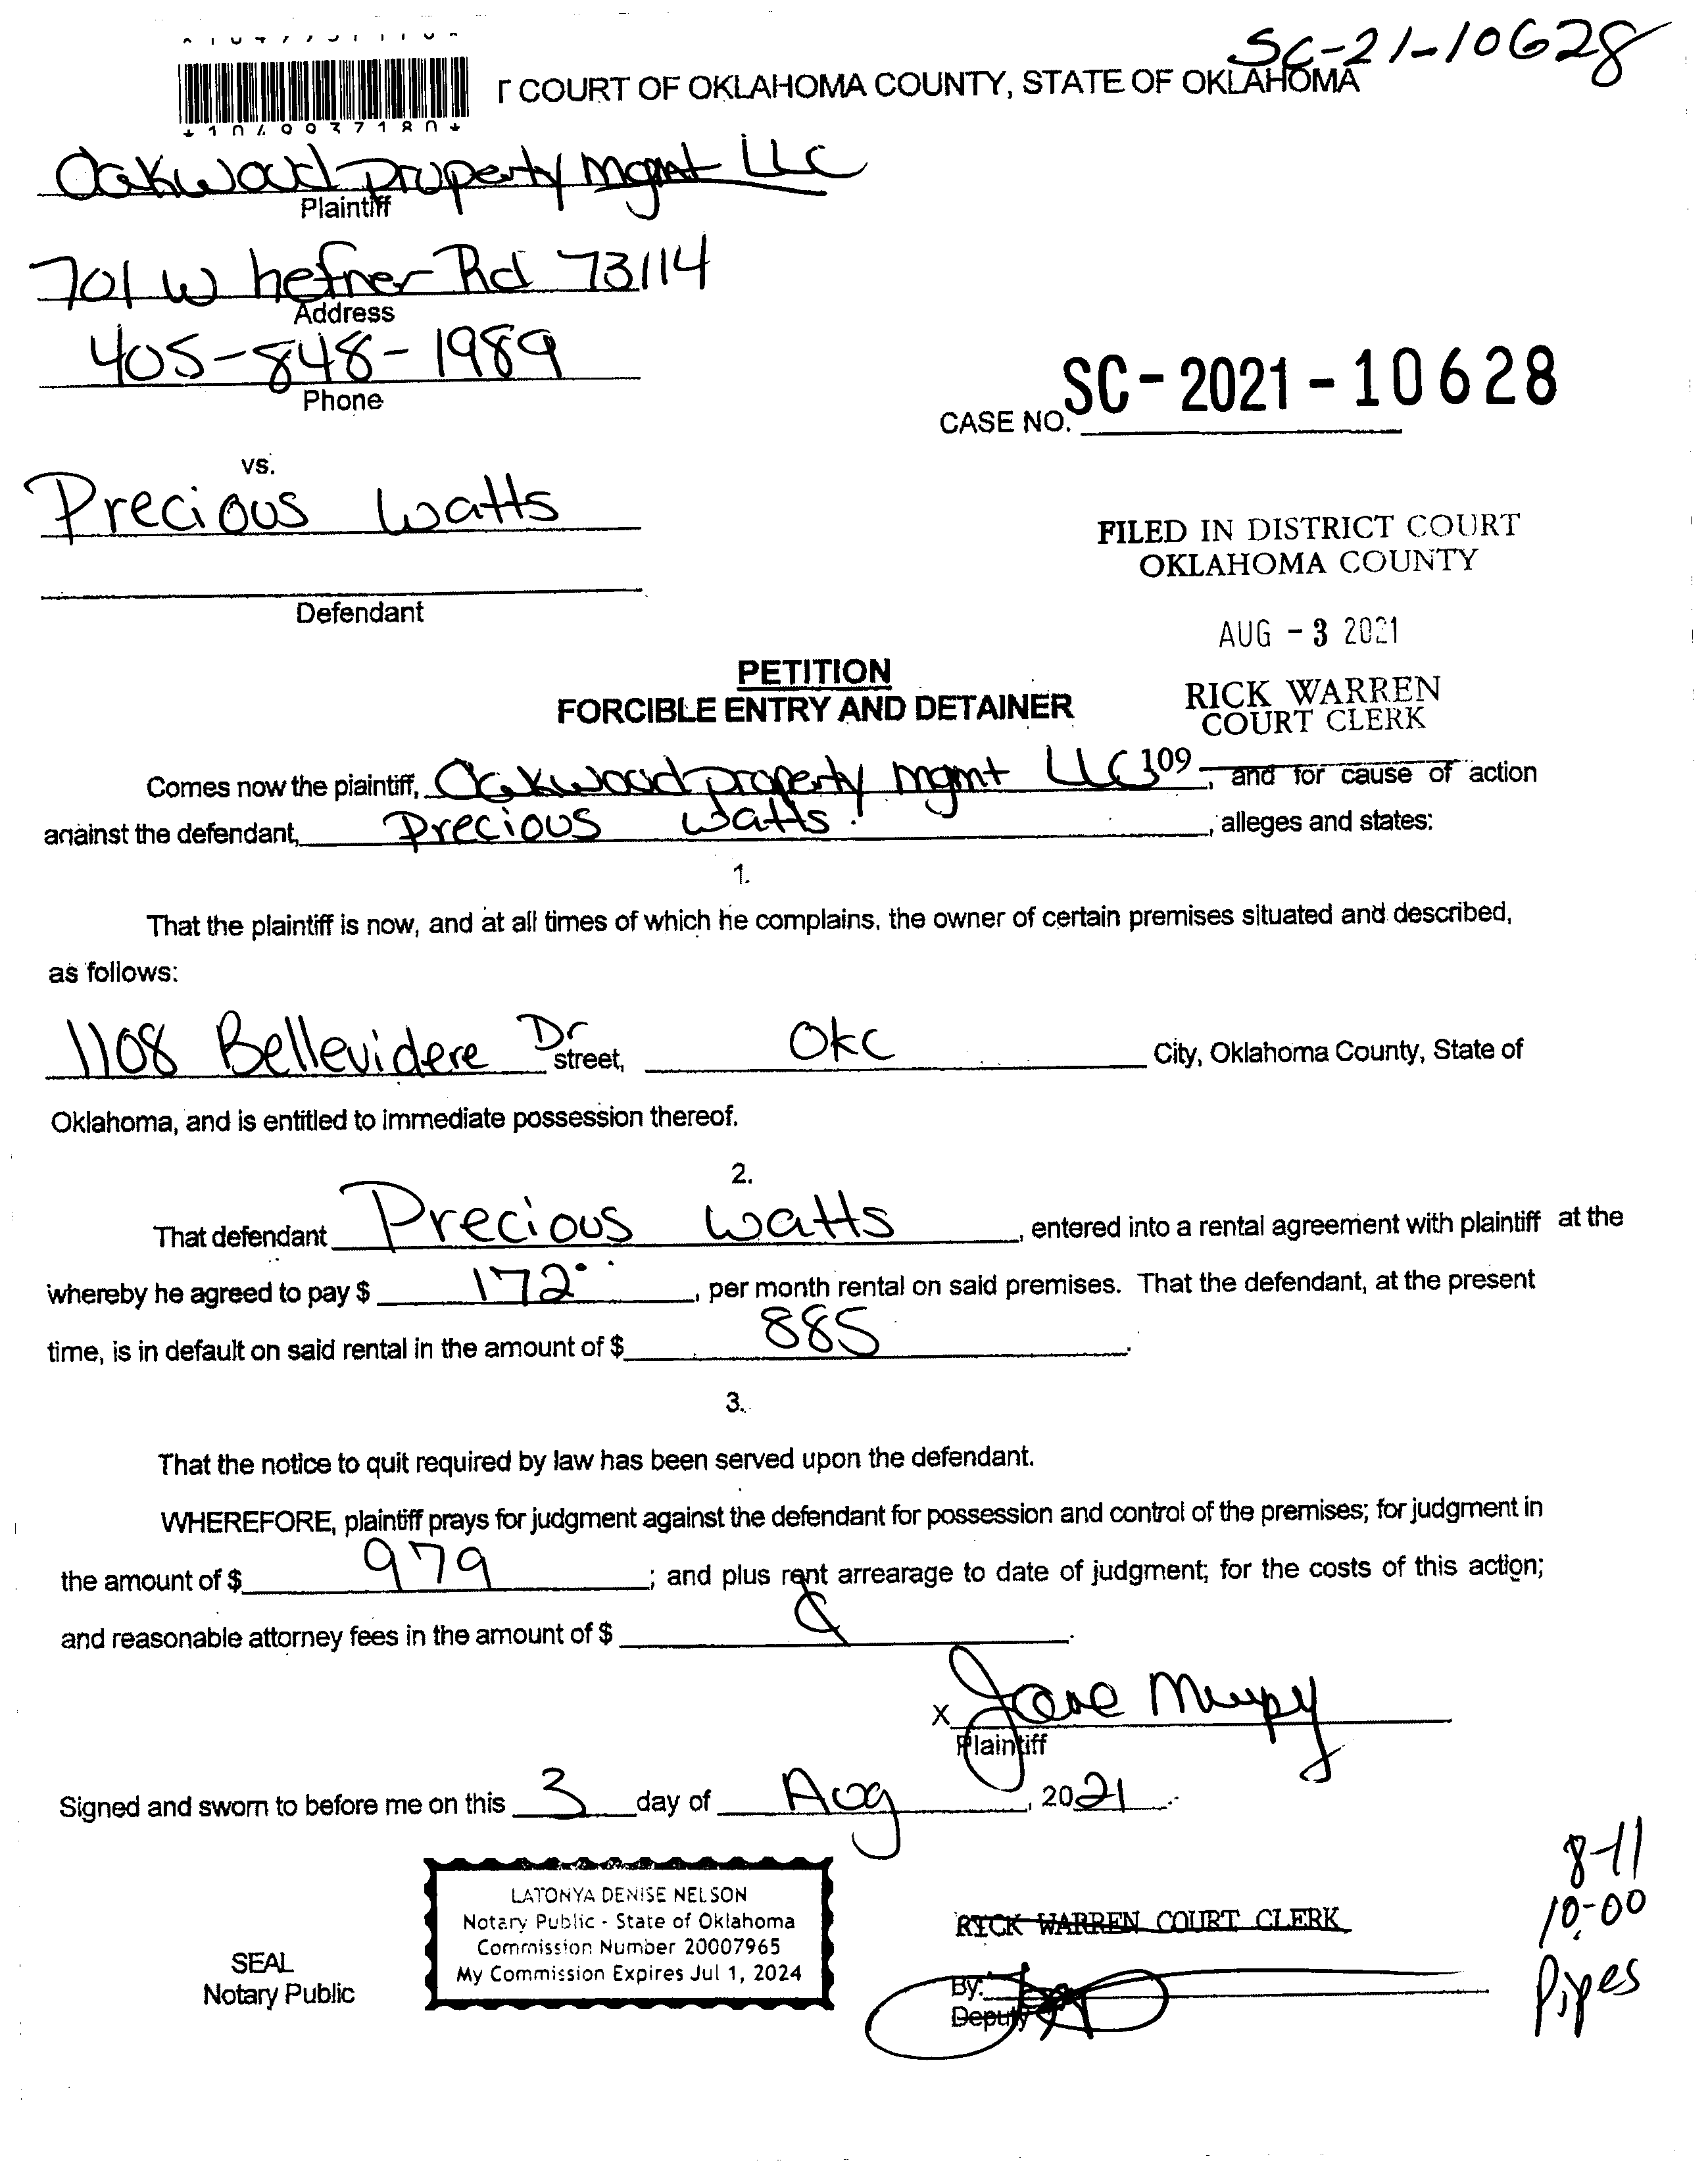 SC-21-10628
T COURT OF OKLAHOMA COUNTY, STATE OF OKLAHOMA
*1049937180*
Oakwood property mgmt LLC
Plaintiff
701 W hefner Rd 73114
Address
405-848-1989
Phone
CASE NO. SC-2021-10628
vs.
Precious Watts
Defendant
FILED IN DISTRICT COURT
OKLAHOMA COUNTY
AUG -3 2021
RICK WARREN
COURT CLERK
109
PETITION
FORCIBLE ENTRY AND DETAINER
Comes now the plaintiff, Oakwood property mgmt LLC, and for cause of action
against the defendant, Precious Watts, alleges and states:
1.
That the plaintiff is now, and at all times of which he complains, the owner of certain premises situated and described,
as follows:
1108 Bellevidere Dr street, OKC City, Oklahoma County, State of
Oklahoma, and is entitled to immediate possession thereof.
2.
That defendant Precious Watts, entered into a rental agreement with plaintiff at the
whereby he agreed to pay $ 172, per month rental on said premises. That the defendant, at the present
time, is in default on said rental in the amount of $ 885.
3.
That the notice to quit required by law has been served upon the defendant.
WHEREFORE, plaintiff prays for judgment against the defendant for possession and control of the premises; for judgment in
the amount of $ 979; and plus rent arrearage to date of judgment; for the costs of this action;
and reasonable attorney fees in the amount of $
X
Plaintiff
Signed and sworn to before me on this 3 day of Aug, 2021.
8-11
10:00
Pipes
LATONYA DENISE NELSON
Notary Public - State of Oklahoma
Commission Number 20007965
My Commission Expires Jul 1, 2024
SEAL
Notary Public
RICK WARREN COURT CLERK
By:
Deputy